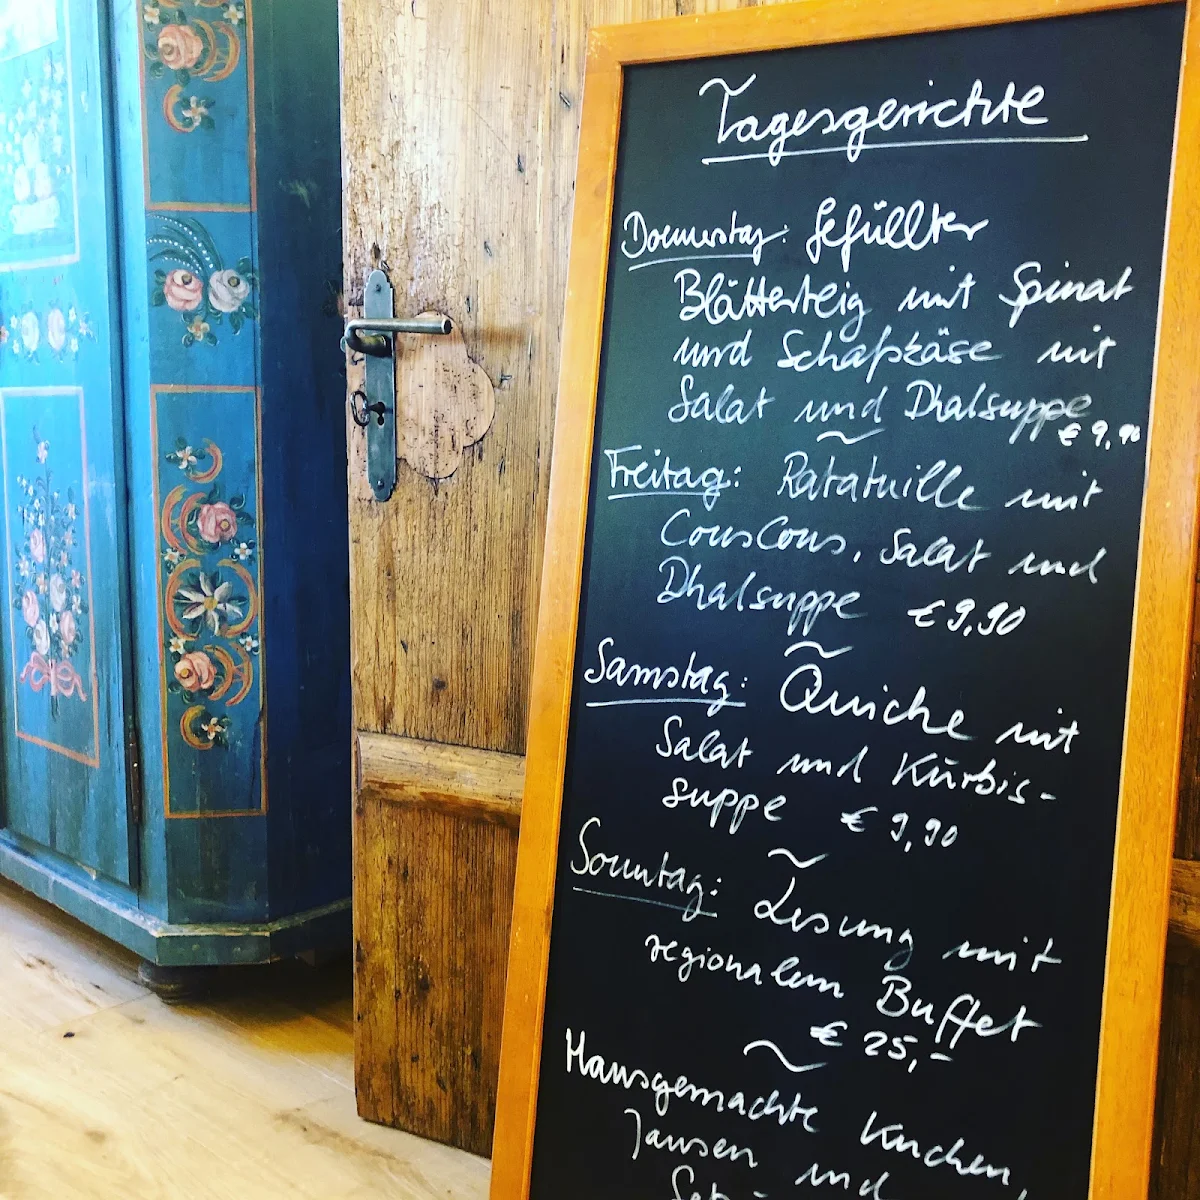 Tagesgerichte
Donnerstag: Gefüllter
Blätterteig mit Spinat
und Schafskäse mit
Salat und Dhalsuppe
€ 9,90
Freitag: Ratatuille mit
CousCous, Salat und
Dhalsuppe € 9,90
Samstag: Quiche mit
Salat und Kürbis-
suppe € 9,90
Sonntag: Lesung mit
regionalem Buffet
€ 25,-
Hausgemachte Kuchen,
Jausen und